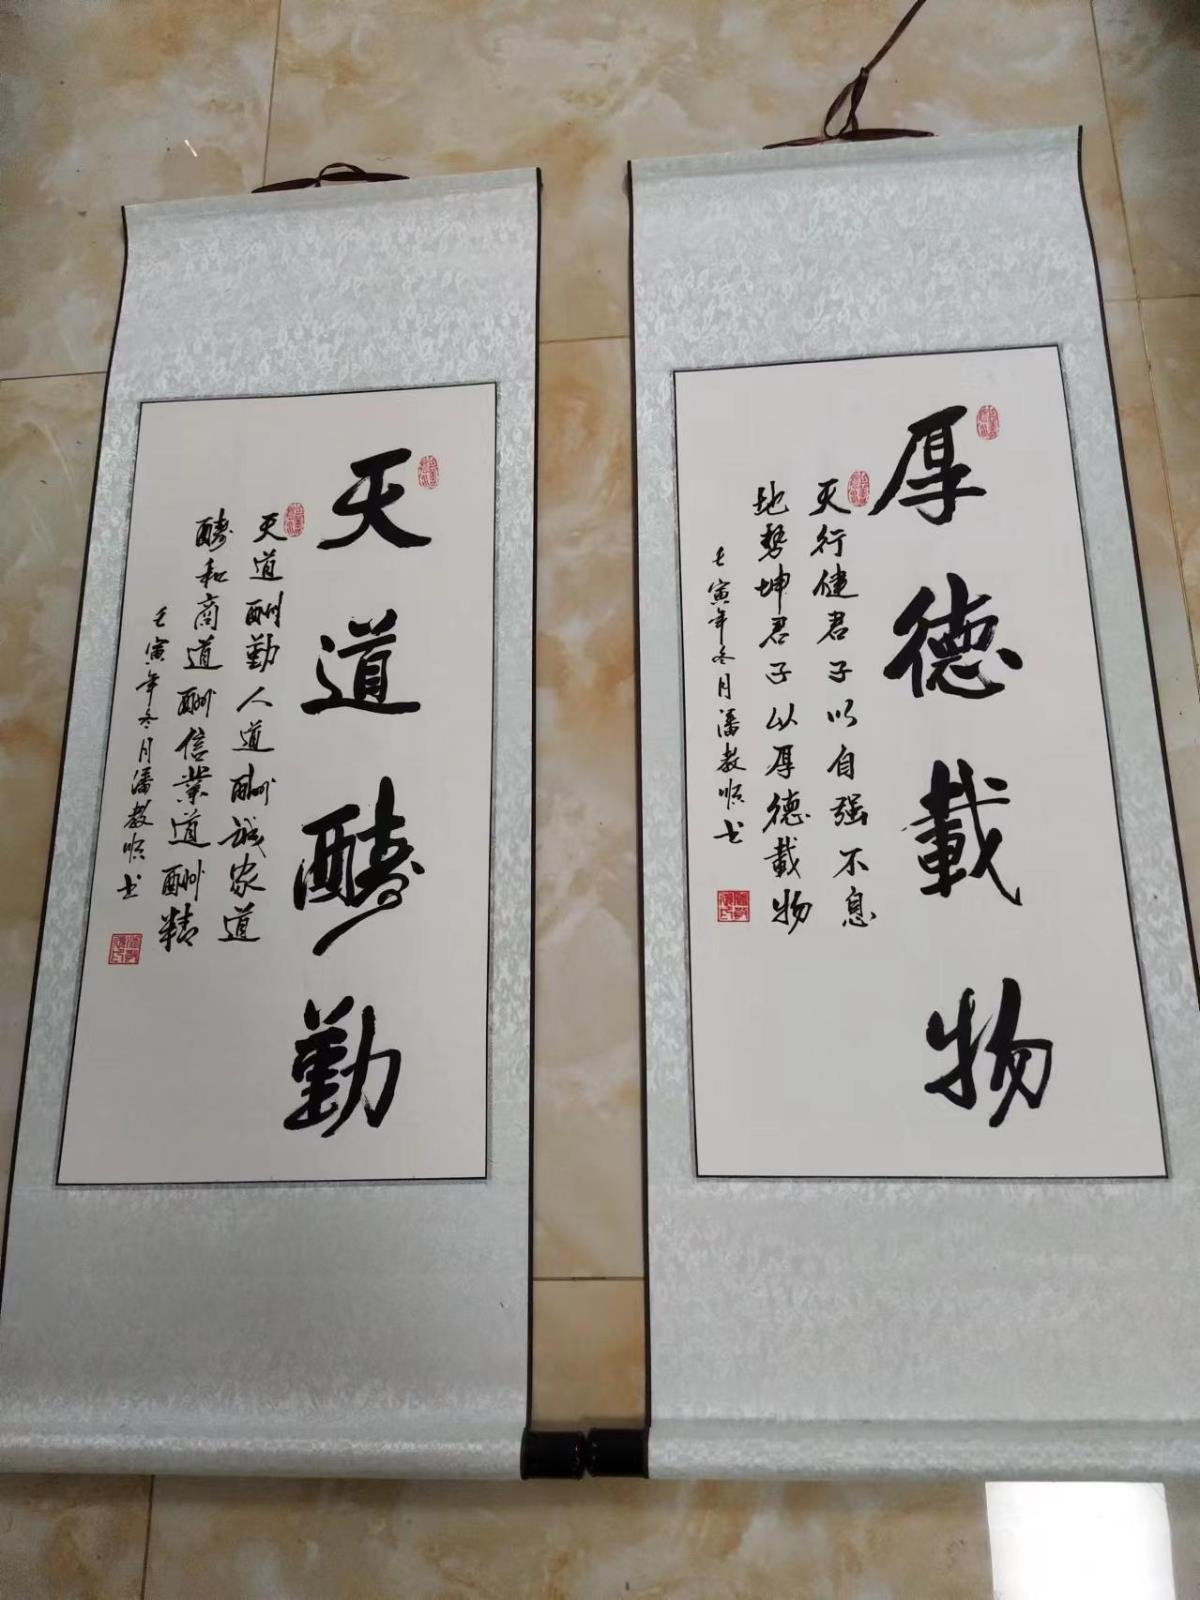 厚德載物
天行健君子以自强不息
地势坤君子以厚德載物
壬寅年冬月潘教顺书
天道酬勤
天道酬勤人道酬诚家道
酬和商道酬信業道酬精
壬寅年冬月潘教顺书